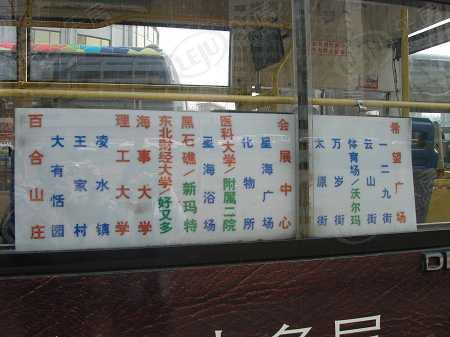 百合山庄
大有恬园
王家村
凌水镇
理工大学
海事大学
东北财经大学/好又多
黑石礁/新玛特
星海浴场
医科大学/附属二院
化物所
星海广场
会展中心
太原街
万岁街
体育场/沃尔玛
云山街
一二九街
希望广场